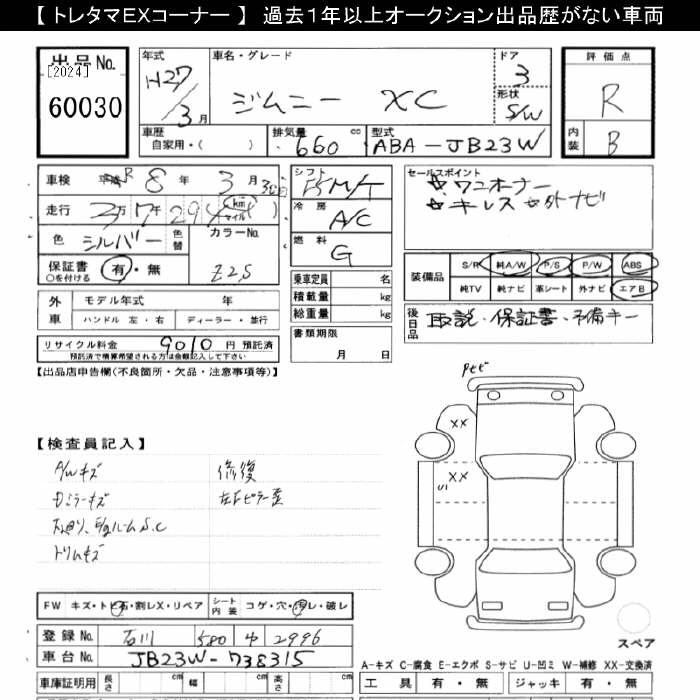 【 トレタマEXコーナー 】 過去１年以上オークション出品歴がない車両
出品No.
[2024]
60030
年式
H27/3月
車名・グレード
ジムニー XC
ドア
3
形状
S/W
評価点
R
内装
B
車歴
自家用・( )
排気量
660 cc
型式
ABA-JB23W
車検 R 8年 3月
走行 2万7千29 km マイル
色 シルバー 色替
カラーNo.
Z2S
保証書 有・無
○を付ける
シフト
F5M/T
冷房
A/C
燃料
G
セールスポイント
☆ワンオーナー
☆キーレス ☆外ナビ
装備品
S/R 純A/W P/S P/W ABS
純TV 純ナビ 革シート 外ナビ エアB
外車
モデル年式 年
ハンドル 左・右 ディーラー・並行
乗車定員 名
積載量 kg
総重量 kg
書類期限
月 日
後日品
取説・保証書・予備キー
リサイクル料金 9010 円 預託済
預託済で積算希望される方は金額記入して下さい
【出品店申告欄(不良箇所・欠品・注意事項等)】
【検査員記入】
A/Wキズ
Dミラーキズ
下廻り、E/gルームS.C
トリムキズ
修復
左Fピラー歪
XX
XX
S
FW キズ・トビ石・割レX・リペア
シート内装 コゲ・穴・汚レ・破レ
登録No. 石川 580 2996
車台No. JB23W-738315
車庫証明用 長さ cm 幅 cm 高さ cm
スペア
A-キズ C-腐食 E-エクボ S-サビ U-凹ミ W-補修 XX-交換済
工具 有・無 ジャッキ 有・無